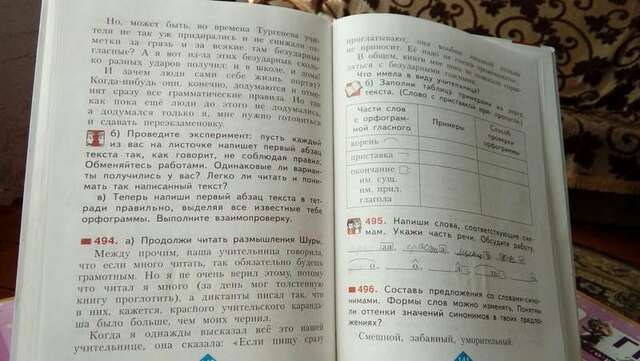 Но, может быть, во времена Тургенева учи-
тели не так уж придирались и не снижали от-
метки за грязь и за всякие там безударные
гласные? А я вот из-за этих безударных сколь-
ко разных ударов получил: и в школе, и дома!
И зачем люди сами себе жизнь портят?
Когда-нибудь они, конечно, додумаются и отме-
нят сразу все грамматические правила. Но так
как пока ещё люди до этого не додумались,
а додумался только я, мне нужно готовиться
и сдавать переэкзаменовку.
б) Проведите эксперимент: пусть каждый
из вас на листочке напишет первый абзац
текста так, как говорит, не соблюдая правил.
Обменяйтесь работами. Одинаковые ли вариан-
ты получились у вас? Легко ли читать и пони-
мать так написанный текст?
в) Теперь напиши первый абзац текста в тет-
ради правильно, выделяя все известные тебе
орфограммы. Выполните взаимопроверку.
494. а) Продолжи читать размышления Шуры.
Между прочим, наша учительница говорила,
что если много читать, так обязательно будешь
грамотным. Но я не очень верил этому, потому
что читал я много (за день мог толстенную
книгу проглотить), а диктанты писал так, что
в них, кажется, красного учительского каранда-
ша было больше, чем моих чернил.
Когда я однажды высказал всё это нашей
учительнице, она сказала: «Если пищу сразу
проглатывают, она вообще никакой пользы
не приносит. Её надо не спеша
В общем, книги мне пока не помогали справ-
ляться с безударными гласными.
Что имела в виду учительница?
б) Заполни таблицу примерами из этого
текста. (Слово с приставкой
Части слов
с орфограм-
мой гласного
Примеры
Способ
проверки
орфограммы
корень
приставка
окончание
им. сущ.
им. прил.
глагола
495. Напиши слова, соответствующие схе-
мам. Укажи часть речи. Обсудите работу.
496. Составь предложения со словами-сино-
нимами. Формы слов можно изменять. Понятны
ли оттенки значений синонимов в твоих предло-
жениях?
Смешной, забавный, уморительный.